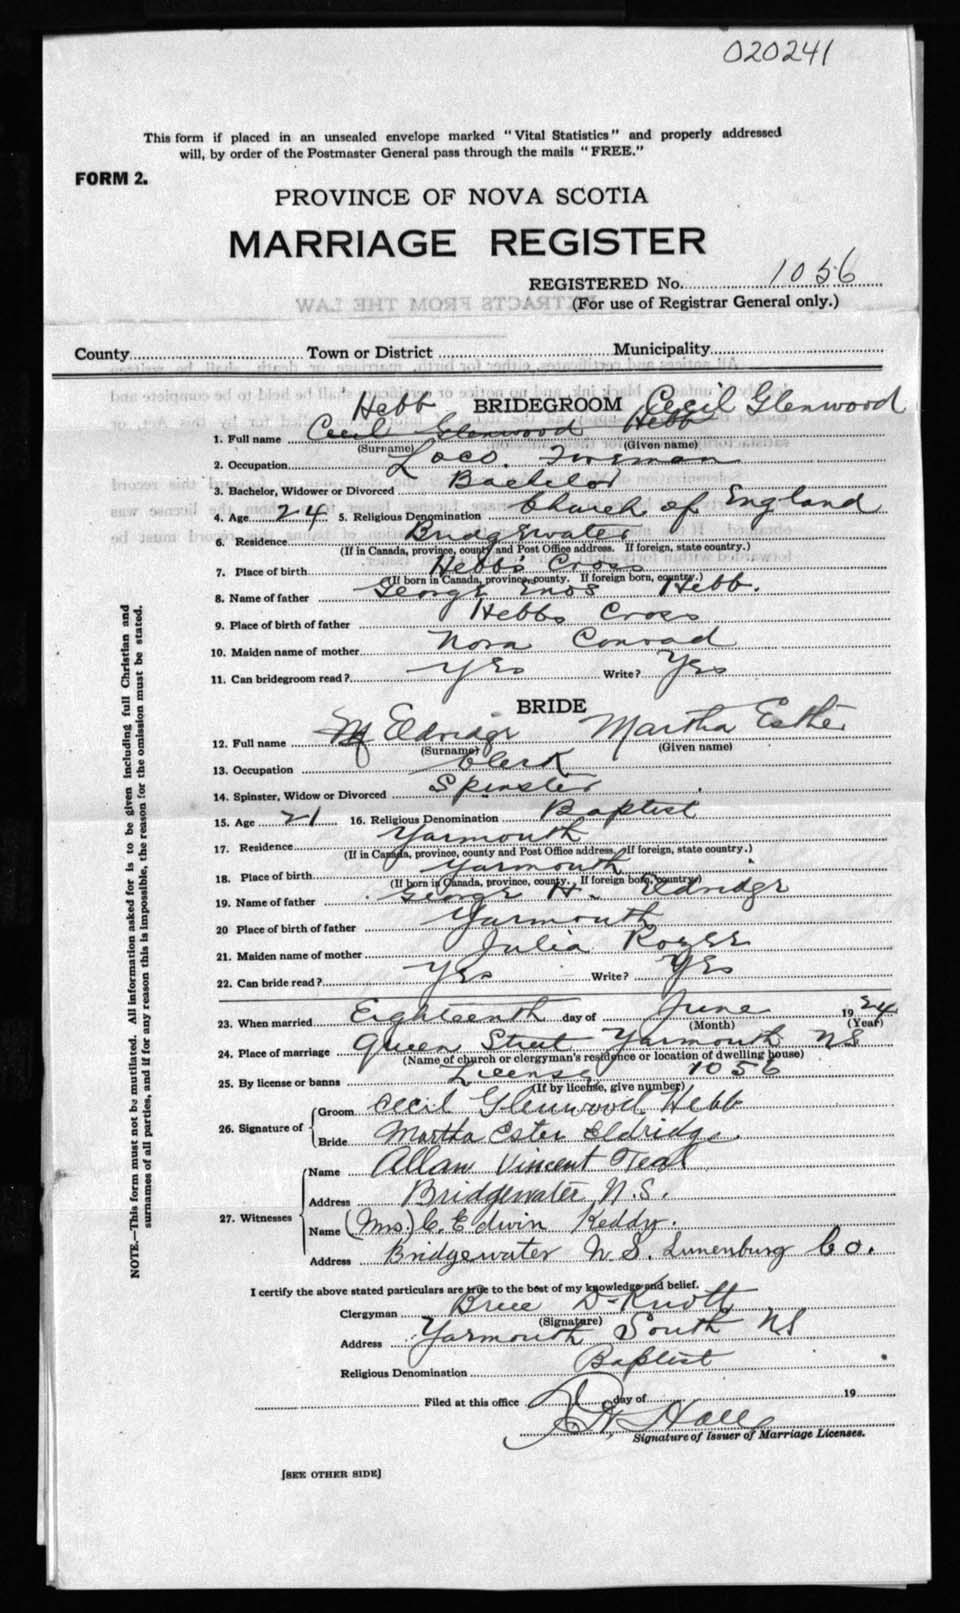 020241
This form if placed in an unsealed envelope marked "Vital Statistics" and properly addressed
will, by order of the Postmaster General pass through the mails "FREE."
FORM 2.
PROVINCE OF NOVA SCOTIA
MARRIAGE REGISTER
REGISTERED No. 1056
(For use of Registrar General only.)
County Town or District Municipality
Hebb BRIDEGROOM Cecil Glenwood
1. Full name Cecil Glenwood Hebb
(Surname) (Given name)
2. Occupation Loco. Fireman
3. Bachelor, Widower or Divorced Bachelor
4. Age 24 5. Religious Denomination Church of England
6. Residence Bridgewater
(If in Canada, province, county and Post Office address. If foreign, state country.)
7. Place of birth Hebbs Cross
(If born in Canada, province, county. If foreign born, country.)
8. Name of father George Enos Hebb.
9. Place of birth of father Hebbs Cross
10. Maiden name of mother Nora Conrad
11. Can bridegroom read? Yes Write? Yes
BRIDE
12. Full name Eldridge Martha Esther
(Surname) (Given name)
13. Occupation Clerk
14. Spinster, Widow or Divorced Spinster
15. Age 21 16. Religious Denomination Baptist
17. Residence Yarmouth
(If in Canada, province, county and Post Office address. If foreign, state country.)
18. Place of birth Yarmouth
(If born in Canada, province, county. If foreign born, country.)
19. Name of father George H. Eldridge
20 Place of birth of father Yarmouth
21. Maiden name of mother Julia
22. Can bride read? Yes Write? Yes
23. When married Eighteenth day of June 1924
(Month) (Year)
24. Place of marriage Queen Street Yarmouth NS
(Name of church or clergyman's residence or location of dwelling house)
25. By license or banns License 1056
(If by license, give number)
26. Signature of Groom Cecil Glenwood Hebb
Bride Martha Ester Eldridge.
27. Witnesses Name Allan Vincent Teal
Address Bridgewater N.S.
Name (Mrs.) C. Edwin Keddy.
Address Bridgewater N.S. Lunenburg Co.
I certify the above stated particulars are true to the best of my knowledge and belief.
Clergyman Brice D. Knott
(Signature)
Address Yarmouth South NS
Religious Denomination Baptist
Filed at this office day of 19
Hall
Signature of Issuer of Marriage Licenses.
[SEE OTHER SIDE]
NOTE.—This form must not be mutilated. All information asked for is to be given including full Christian and
surnames of all parties, and if for any reason this is impossible, the reason for the omission must be stated.